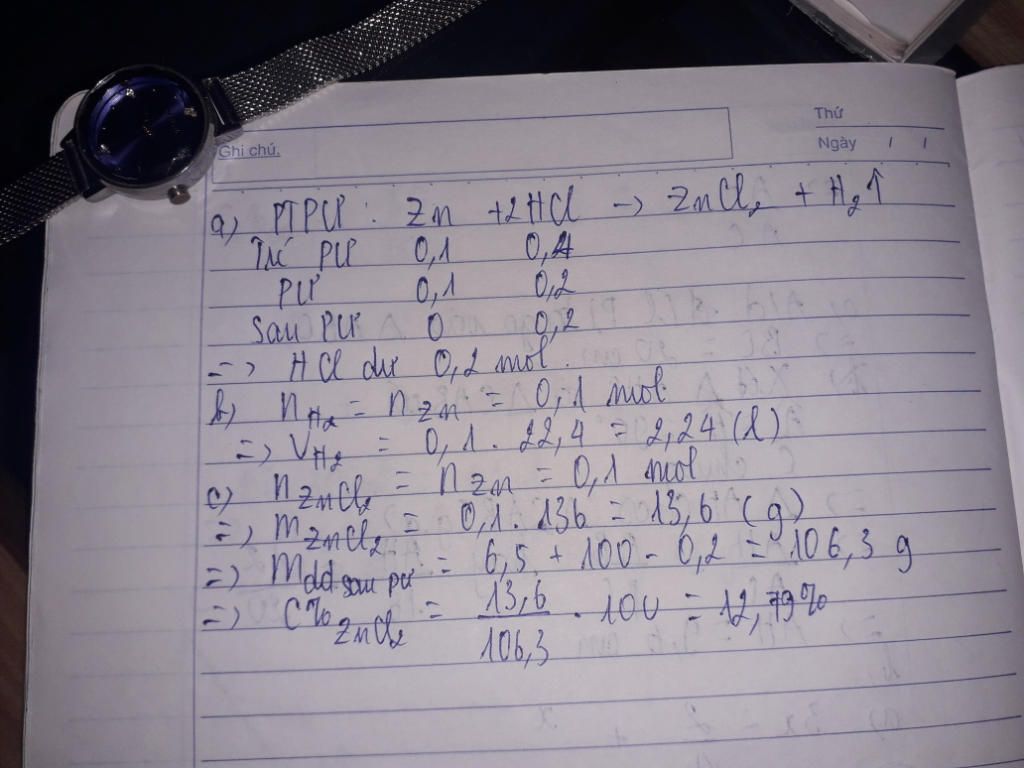 Thứ
Ghi chú.
Ngày / /
a) PTPƯ : Zn + 2HCl -> ZnCl₂ + H₂↑
Trc PƯ 0,1 0,4
PƯ 0,1 0,2
Sau PƯ 0 0,2
=> HCl dư 0,2 mol.
b) n H₂ = n Zn = 0,1 mol
=> V H₂ = 0,1 . 22,4 = 2,24 (l)
c) n ZnCl₂ = n Zn = 0,1 mol
=> m ZnCl₂ = 0,1 . 136 = 13,6 (g)
=> m dd sau pư = 6,5 + 100 - 0,2 = 106,3 g
=> C% ZnCl₂ = 13,6 / 106,3 . 100 = 12,79%